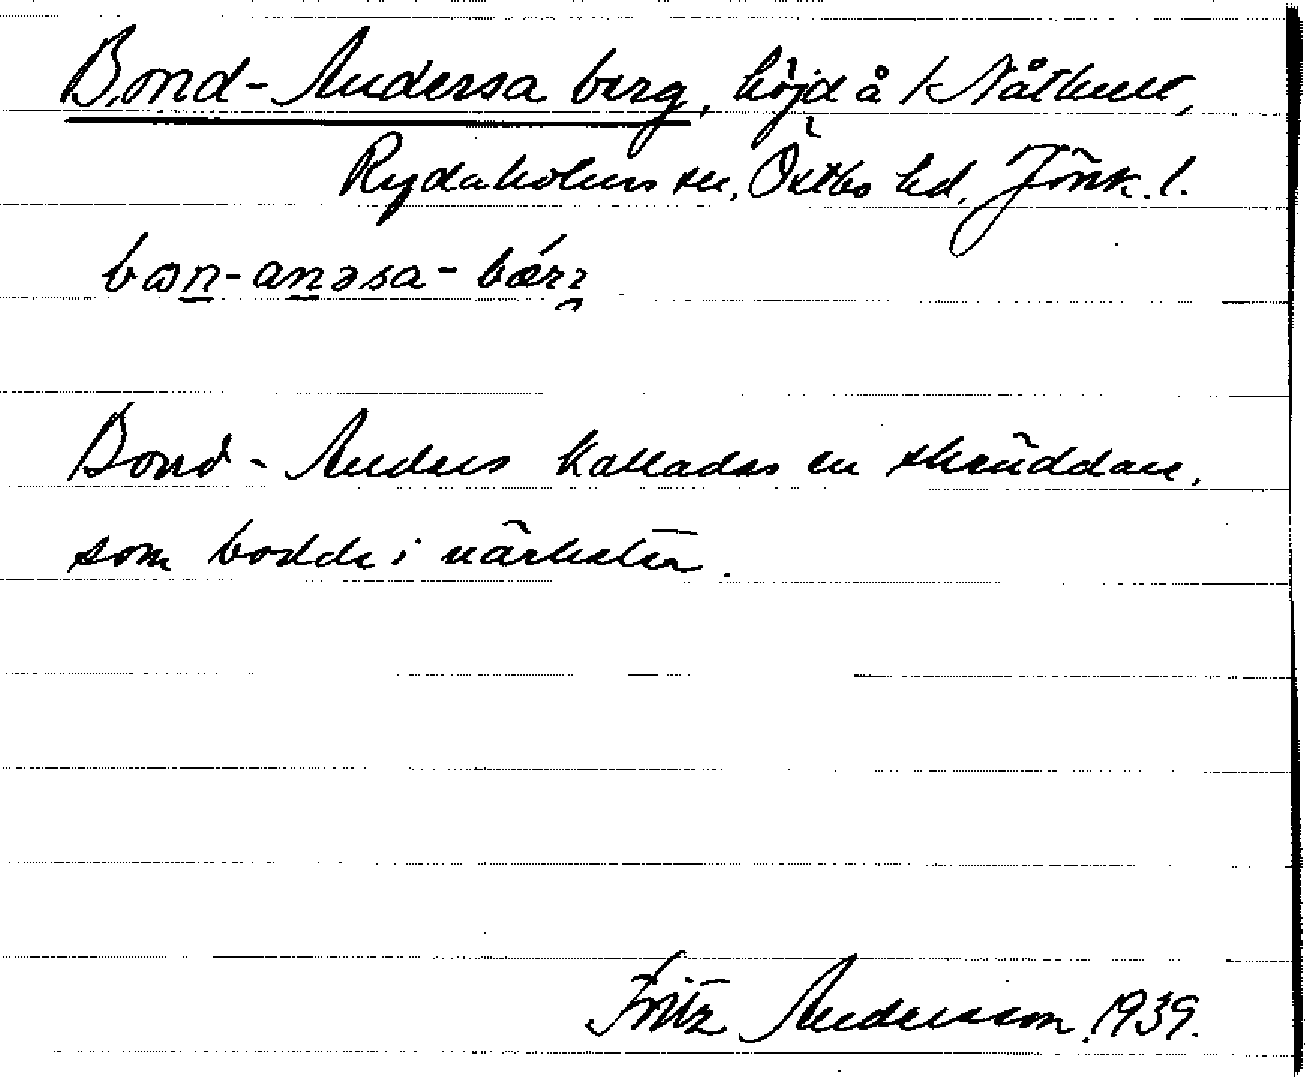 Bond-Andersa berg, höjd å
Rydaholms sn, Östbo hd, Jönk. l.
bɷn-anəsa-
Bond-Anders kallades en skräddare,
som bodde i närheten.
Fritz Andersson, 1939.